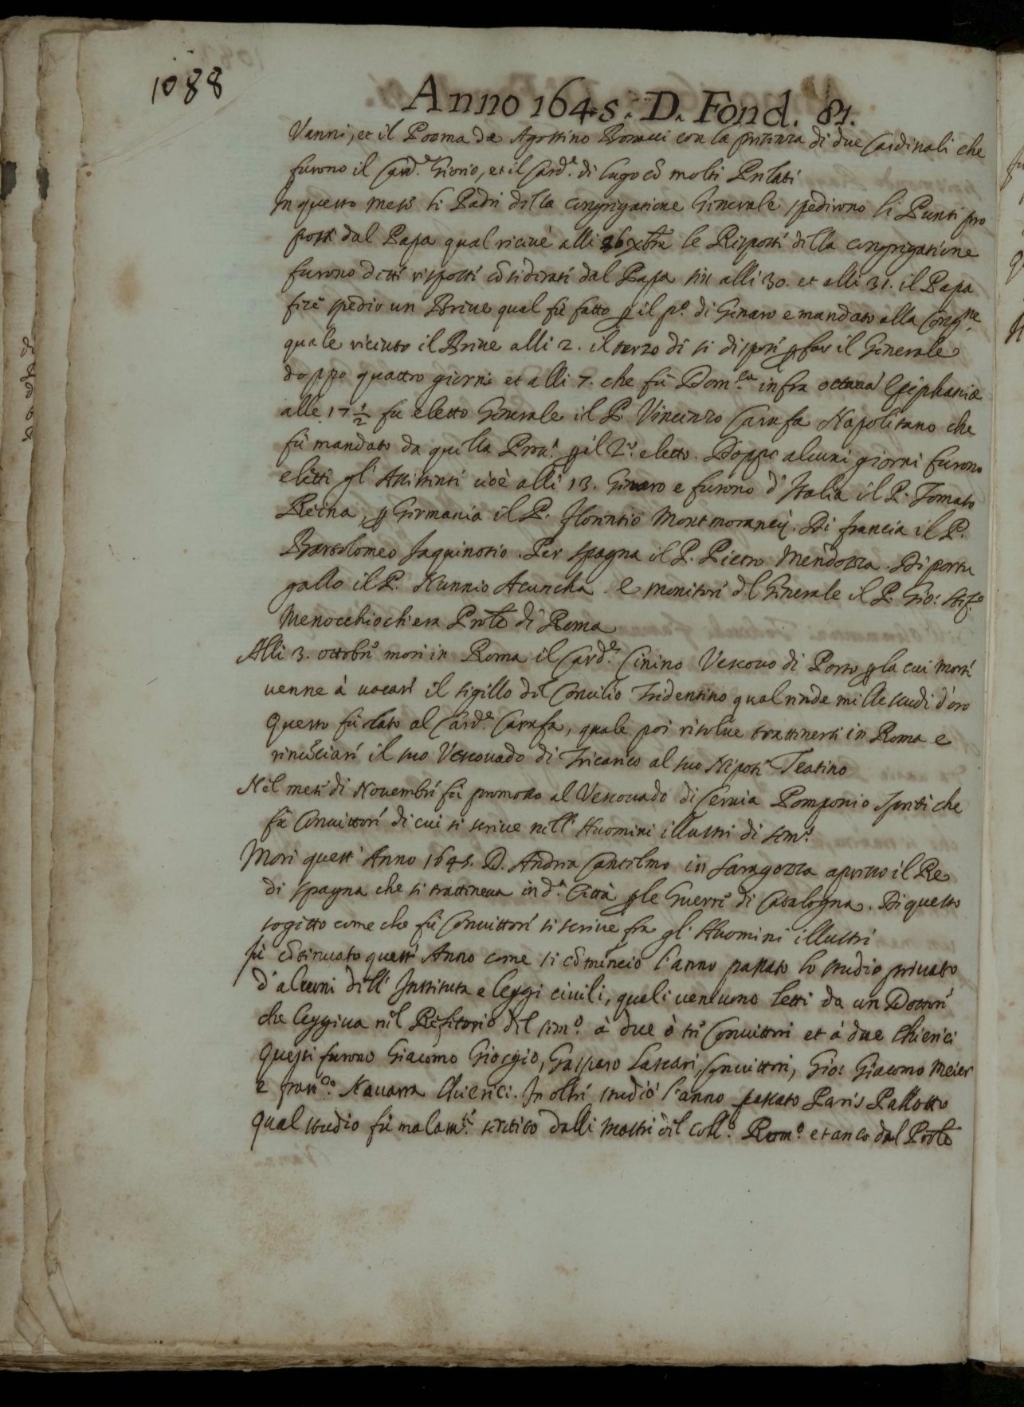 1088
Anno 1645. D. Fond. 81.
Vanni, et il Poema da Agostino con la presenza di due Cardinali che
furono il Card.e Giorio, et il Card.e di Lugo cō molti Prelati
In questo mese li Padri della Congregatione Generale spedirono li Punti pro
posti dal Papa qual riceuè alli 26 Xbre le Risposte della congregatione
furono dette risposte cōsiderate dal Papa sin alli 30. et alli 31. il Papa
fece spedir un Breue qual fù fatto p il p.o di Genaro e mandato alla Cong.ne
quale riceuuto il Breue alli 2. il terzo di si dispose p far il Generale
doppo quattro giorni et alli 7. che fù Dom.ca infra octaua Epiphaniæ
alle 17 1/2 fu eletto Generale il P. Vincenzo Carafa Napolitano che
fù mandato da quella Prou.a p il 2.o eletto. Doppo alcuni giorni furono
eletti gl' Assistenti cioè alli 13. Genaro e furono d' Italia il P. Tomaso
Reina, p Germania il P. Florentio Montmorancij. Di francia il P.
Bartolomeo Jaquinotio. Per spagna il P. Pietro Mendozza. Di portu
gallo il P. Nunnio Acuncha. e monitore del Generale il P. Gio: Stef.o
Menocchio ch' era Prole di Roma
Alli 3. ottobre morì in Roma il Card.e Cinino Vescouo di Porto p la cui morte
uenne à uacare il sigillo del Concilio Tridentino qual rende mille scudi d'oro
questo fù dato al Card.e Carafa, quale poi risolue trattenersi in Roma e
rinūciare il suo Vescouado di Tricarico al suo Nipote Teatino
Nel mese di Nouembre fù promosso al Vescouado di Ceruia Pomponio Spreti che
fù Conuittore di cui si scriue nell' Huomini illustri di sem.o
Morì quest' Anno 1645. D. Andrea Cantelmo in Saragozza apresso il Re
di spagna che si tratteneua in d.a Città p le Guerre di Catalogna. Di questo
sogetto come che fù Conuittore si scriue fra gl' Huomini illustri
fù cōtinuato quest' Anno come si cōminciò l'anno passato lo studio priuato
d' alcuni dell' Instituta e leggi ciuili, quali ueniuono letti da un Dottore
che leggeua nel Refitorio del sem.o à due ò trè Conuittori et à due Chierici
Questi furono Giacomo Giorgio, Gasparo Lascari, Conuittori, Gio: Giacomo Meier
e fran.co Nauarra Chierici. In oltre studiò l'anno passato Paris Pallotto
Qual studio fù malam.te sentito dalli Mastri del Coll.o Rom.o et anco dal Prole